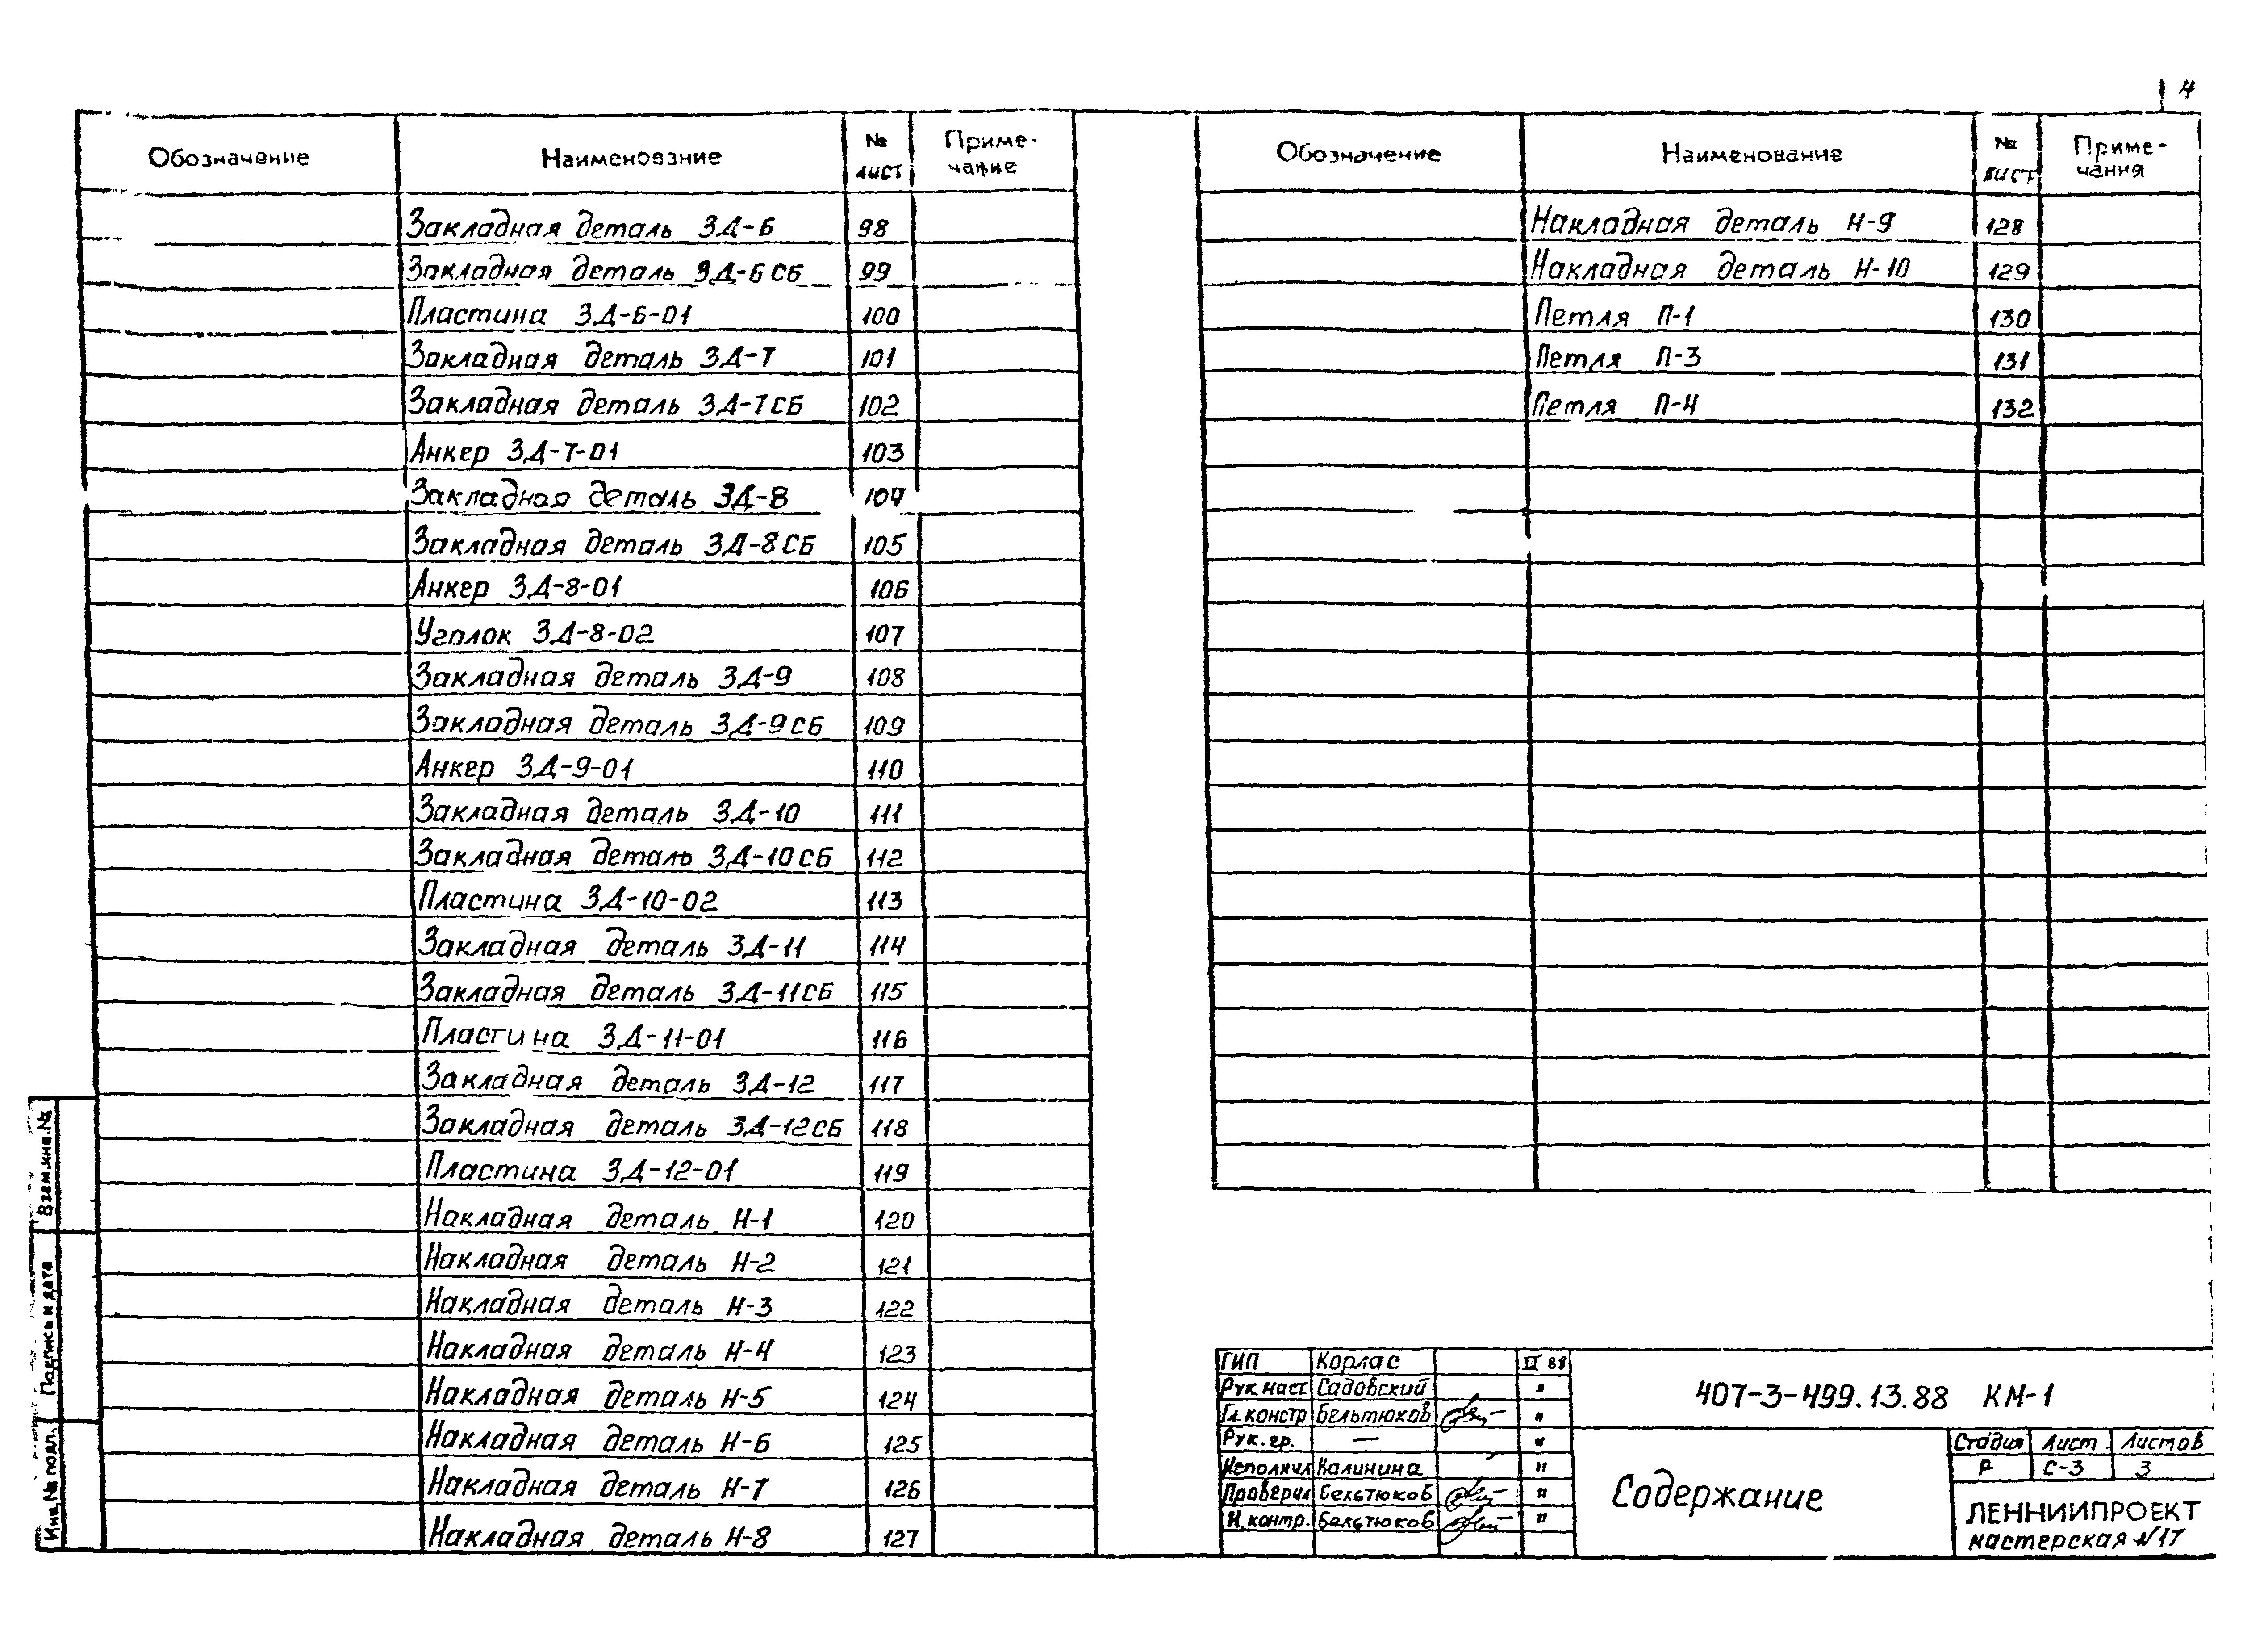 4
Обозначение Наименование № лист Приме-чание
Закладная деталь ЗД-6 98
Закладная деталь ЗД-6СБ 99
Пластина ЗД-6-01 100
Закладная деталь ЗД-7 101
Закладная деталь ЗД-7СБ 102
Анкер ЗД-7-01 103
Закладная деталь ЗД-8 104
Закладная деталь ЗД-8СБ 105
Анкер ЗД-8-01 106
Уголок ЗД-8-02 107
Закладная деталь ЗД-9 108
Закладная деталь ЗД-9СБ 109
Анкер ЗД-9-01 110
Закладная деталь ЗД-10 111
Закладная деталь ЗД-10СБ 112
Пластина ЗД-10-02 113
Закладная деталь ЗД-11 114
Закладная деталь ЗД-11СБ 115
Пластина ЗД-11-01 116
Закладная деталь ЗД-12 117
Закладная деталь ЗД-12СБ 118
Пластина ЗД-12-01 119
Накладная деталь Н-1 120
Накладная деталь Н-2 121
Накладная деталь Н-3 122
Накладная деталь Н-4 123
Накладная деталь Н-5 124
Накладная деталь Н-6 125
Накладная деталь Н-7 126
Накладная деталь Н-8 127
Обозначение Наименование № лист Приме-чания
Накладная деталь Н-9 128
Накладная деталь Н-10 129
Петля П-1 130
Петля П-3 131
Петля П-4 132
Взам.инв.№
Подпись и дата
Инв.№ подл.
ГИП Корлас III 88
Рук.маст. Садовский "
Гл.констр Бельтюков "
Рук.гр. — "
Исполнил Калинина "
Проверил Бельтюков "
Н.контр. Бельтюков "
407-3-499.13.88 КМ-1
Содержание
Стадия Лист Листов
Р С-3 3
ЛЕННИИПРОЕКТ
мастерская N17